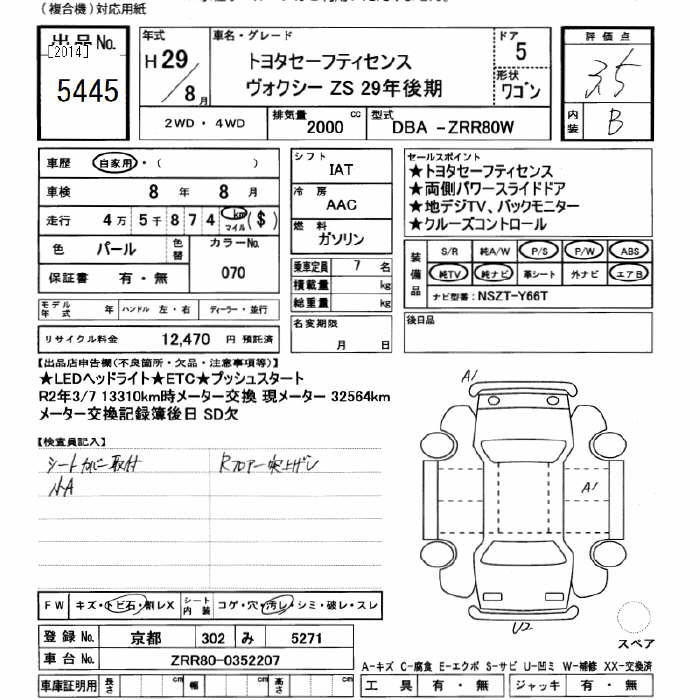 (複合機)対応用紙
出品No.
[2014]
5445
年式
H 29
8 月
車名・グレード
トヨタセーフティセンス
ヴォクシー ZS 29年後期
ドア
5
形状
ワゴン
評価点
3.5
内装
B
2WD・4WD
排気量
2000 cc
型式
DBA -ZRR80W
車歴 自家用・( )
車検 8 年 8 月
走行 4万 5千 8 7 4 km マイル ($)
色 パール 色替
カラーNo.
070
保証書 有・無
モデル年式 年 ハンドル 左・右 ディーラー・並行
リサイクル料金 12,470 円 預託済
シフト
IAT
冷房
AAC
燃料
ガソリン
乗車定員 7 名
積載量 kg
総重量 kg
名変期限
月 日
セールスポイント
★トヨタセーフティセンス
★両側パワースライドドア
★地デジTV、バックモニター
★クルーズコントロール
装備品
S/R 純A/W P/S P/W ABS
純TV 純ナビ 革シート 外ナビ エアB
ナビ型番: NSZT-Y66T
後日品
【出品店申告欄(不良箇所・欠品・注意事項等)】
★LEDヘッドライト★ETC★プッシュスタート
R2年3/7 13310km時メーター交換 現メーター 32564km
メーター交換記録簿後日 SD欠
【検査員記入】
シートカバー取付
NA
Rフロアー吹上げシ
A1
A1
U2
スペア
FW キズ・トビ石・割レX シート内装 コゲ・穴・汚レ・シミ・破レ・スレ
登録No. 京都 302 み 5271
車台No. ZRR80-0352207
車庫証明用 長さ cm 幅 cm 高さ cm
A-キズ C-腐食 E-エクボ S-サビ U-凹ミ W-補修 XX-交換済
工具 有・無 ジャッキ 有・無